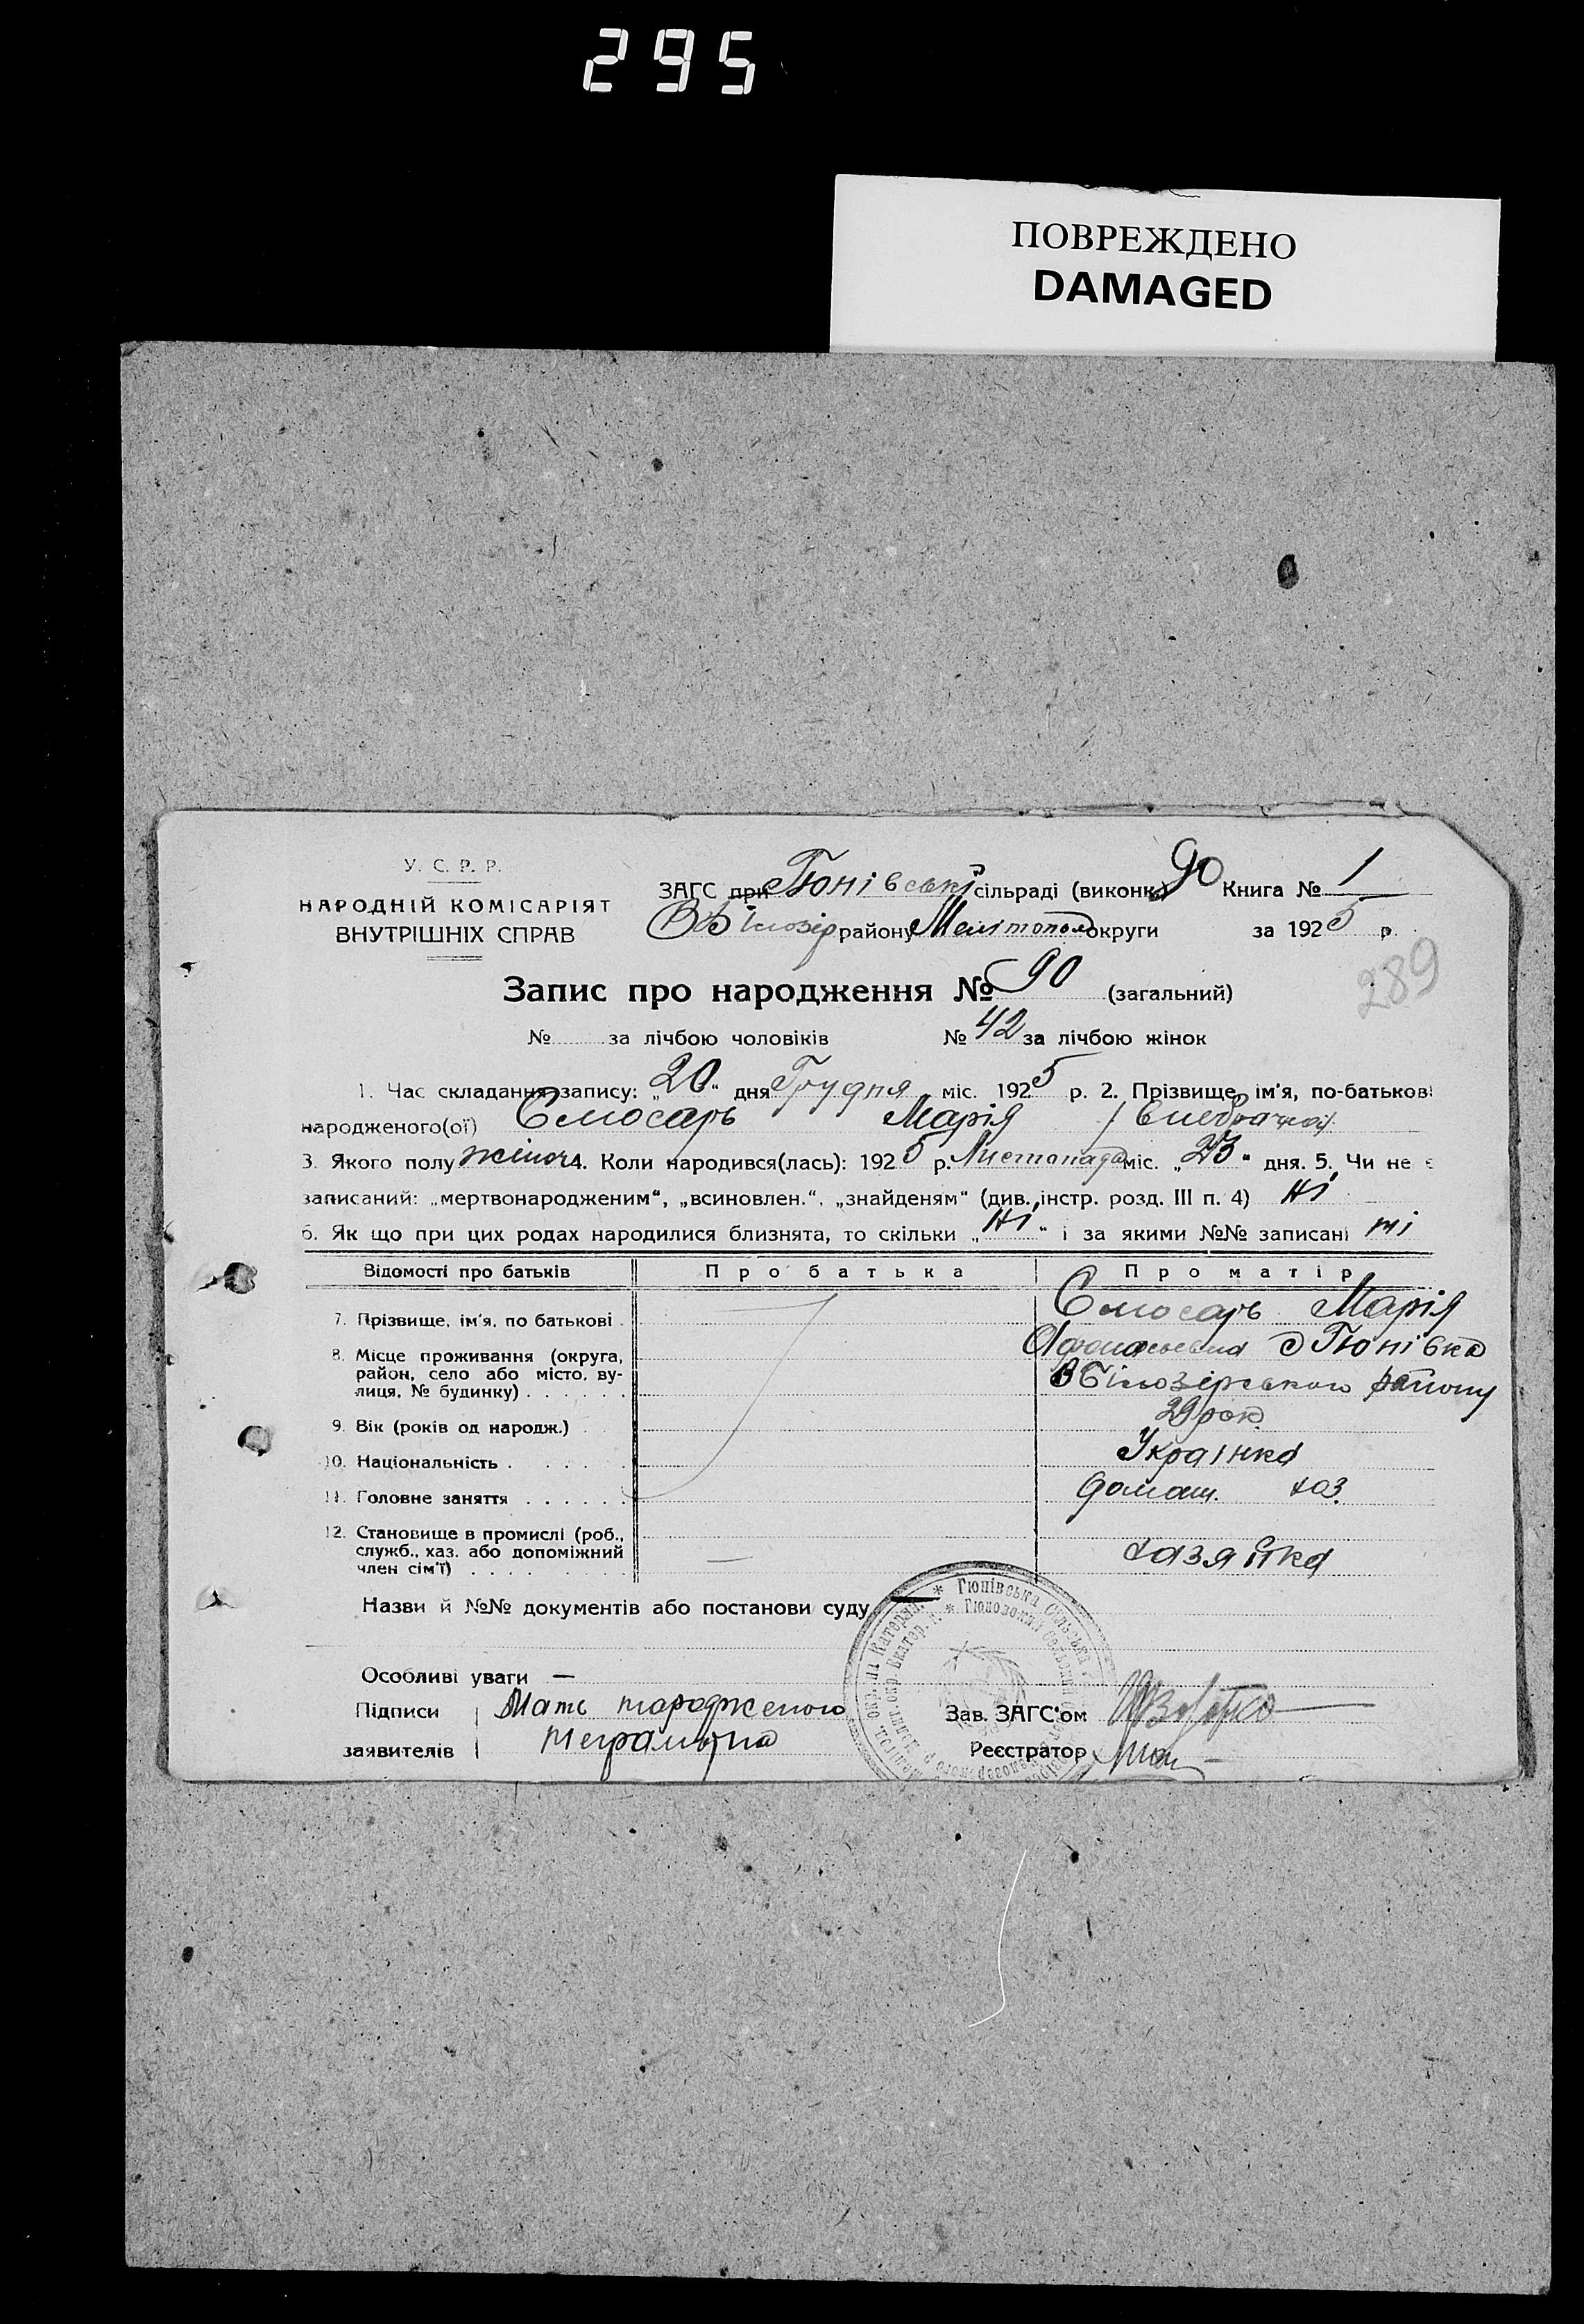 295
ПОВРЕЖДЕНО
DAMAGED
У. С. Р. Р.
НАРОДНІЙ КОМІСАРІЯТ
ВНУТРІШНІХ СПРАВ
ЗАГС при Гюнівській сільраді (виконк.) 90 Книга № 1
В Білозір району Мелітопол округи за 1925 р.
289
Запис про народження № 90 (загальний)
№ за лічбою чоловіків № 42 за лічбою жінок
1. Час складання запису: „20" дня Грудня міс. 1925 р. 2. Прізвище, ім'я, по-батькові
народженого(ої) Слюсарь Марія
3. Якого полу жіноч 4. Коли народився(лась): 1925 р. Листопада міс. „23" дня. 5. Чи не є
записаний: „мертвонародженим", „всиновлен.", „знайденям" (див. інстр. розд. III п. 4) Ні
6. Як що при цих родах народилися близнята, то скільки „Ні" і за якими №№ записані ні
Відомості про батьків Про батька Про матір
7. Прізвище, ім'я, по батькові Слюсарь Марія
Афонасьевна д Гюнівка
8. Місце проживання (округа, район, село або місто, вулиця, № будинку) В Білозірського району
9. Вік (років од народж.) 29 рок
10. Національність Українка
11. Головне заняття домаш. хоз.
12. Становище в промислі (роб., служб., хаз. або допоміжний член сім'ї) — хазяйка
Назви й №№ документів або постанови суду —
Особливі уваги —
Підписи Мать народженого
заявителів неграмотна
Зав. ЗАГС'ом
Реєстратор
Гюнівська Сільська